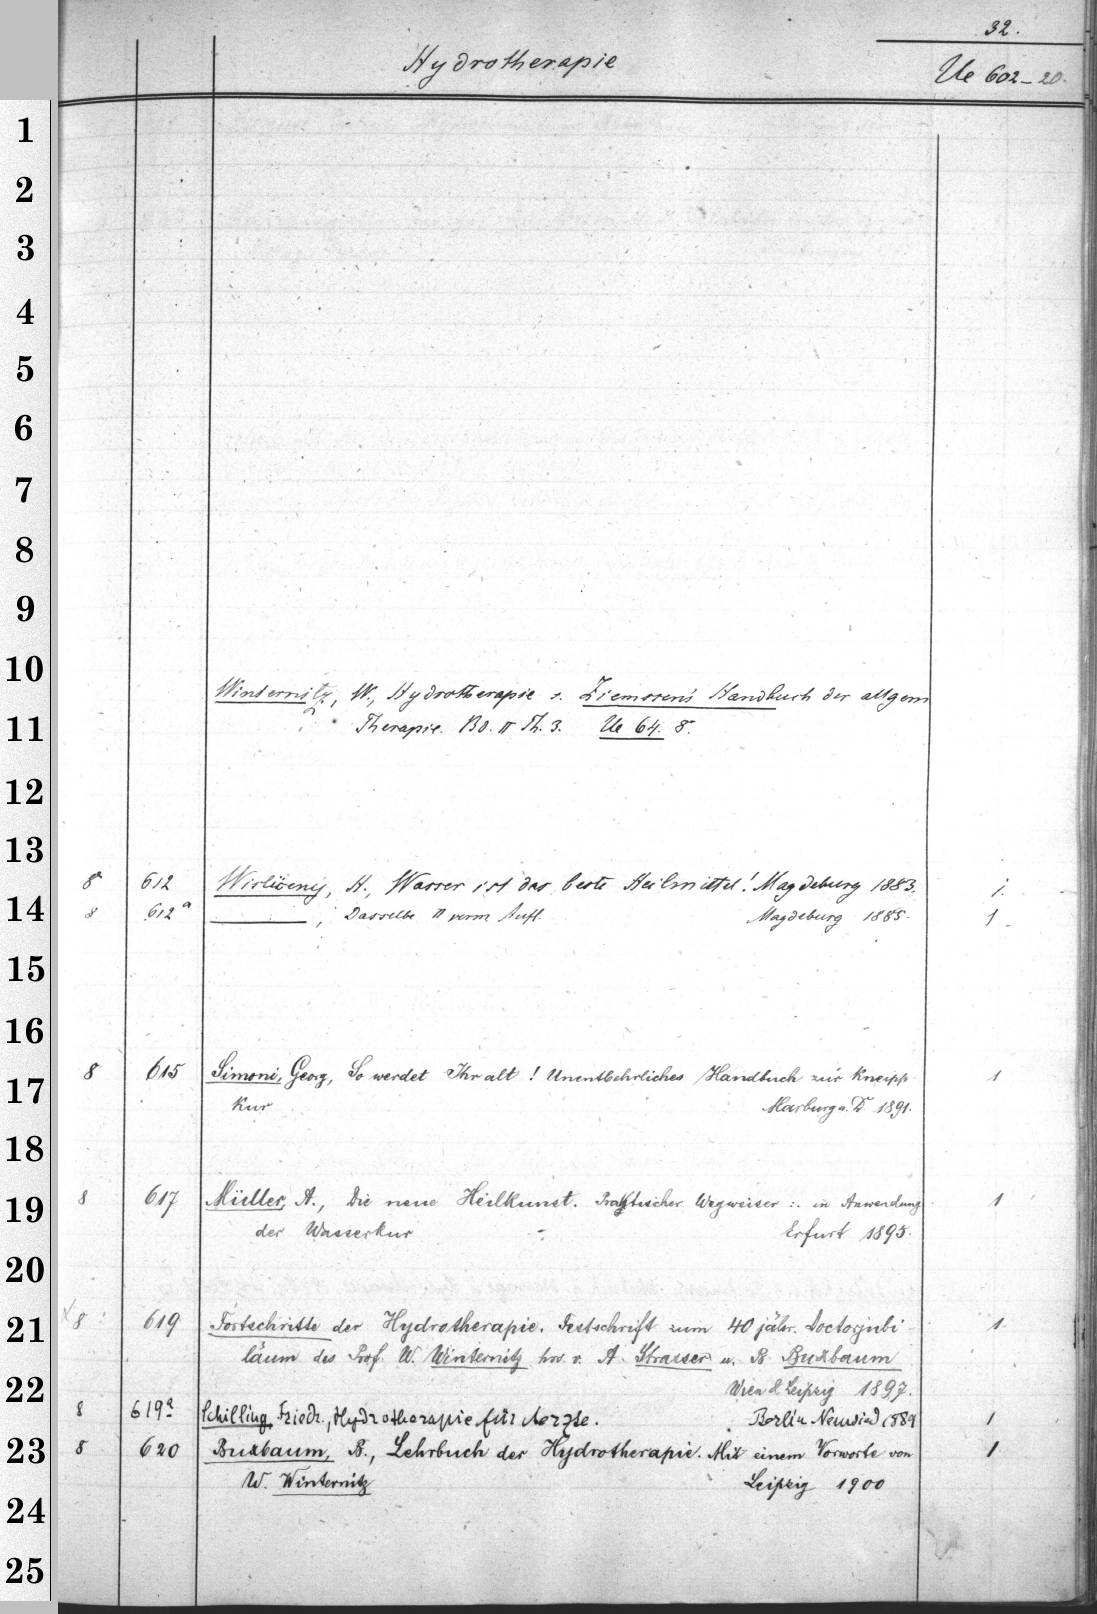 32.
Hydrotherapie
Ue 602-20.
1
2
3
4
5
6
7
8
9
10
Winternitz, W., Hydrotherapie s. Ziemssen's Handbuch der allgem
11
Therapie. Bd. II Th. 3. Ue 64. 8.
12
13
8 612 Wislicenÿ, H., Wasser ist das beste Heilmittel! Magdeburg 1883. 1.
14
8 612a ———, Dasselbe II verm Aufl. Magdeburg 1885. 1
15
16
8 615 Simoni, Georg, So werdet Ihr alt! Unentbehrliches Handbuch zur Kneipp- 1
17
Kur Marburg a. D. 1891.
18
8 617 Müller, A., Die neue Heilkunst. Praktischer Wegweiser in Anwendung 1
19
der Wasserkur Erfurt 1895.
20
8 619 Fortschritte der Hydrotherapie. Festschrift zum 40 jähr. Doctorjubi- 1.
21
läum des Prof. W. Winternitz hrs v. A. Strasser u. B. Buxbaum
22
Wien & Leipzig 1897.
8 619a Schilling, Friedr., Hydrotherapie für Aerzte. Berlin Neuwied 1889 1
23
8 620 Buxbaum, B., Lehrbuch der Hydrotherapie. Mit einem Vorworte von 1
W. Winternitz Leipzig 1900
24
25